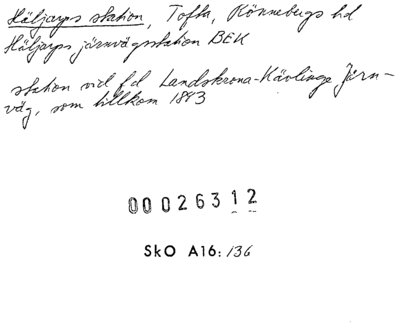 Häljarps station, Tofta, Rönnebergs hd
Häljarps järnvägsstation BEK
station vid f d Landskrona-Kävlinge Järn-
väg, som tillkom 1893
00026312
SkO A16:136